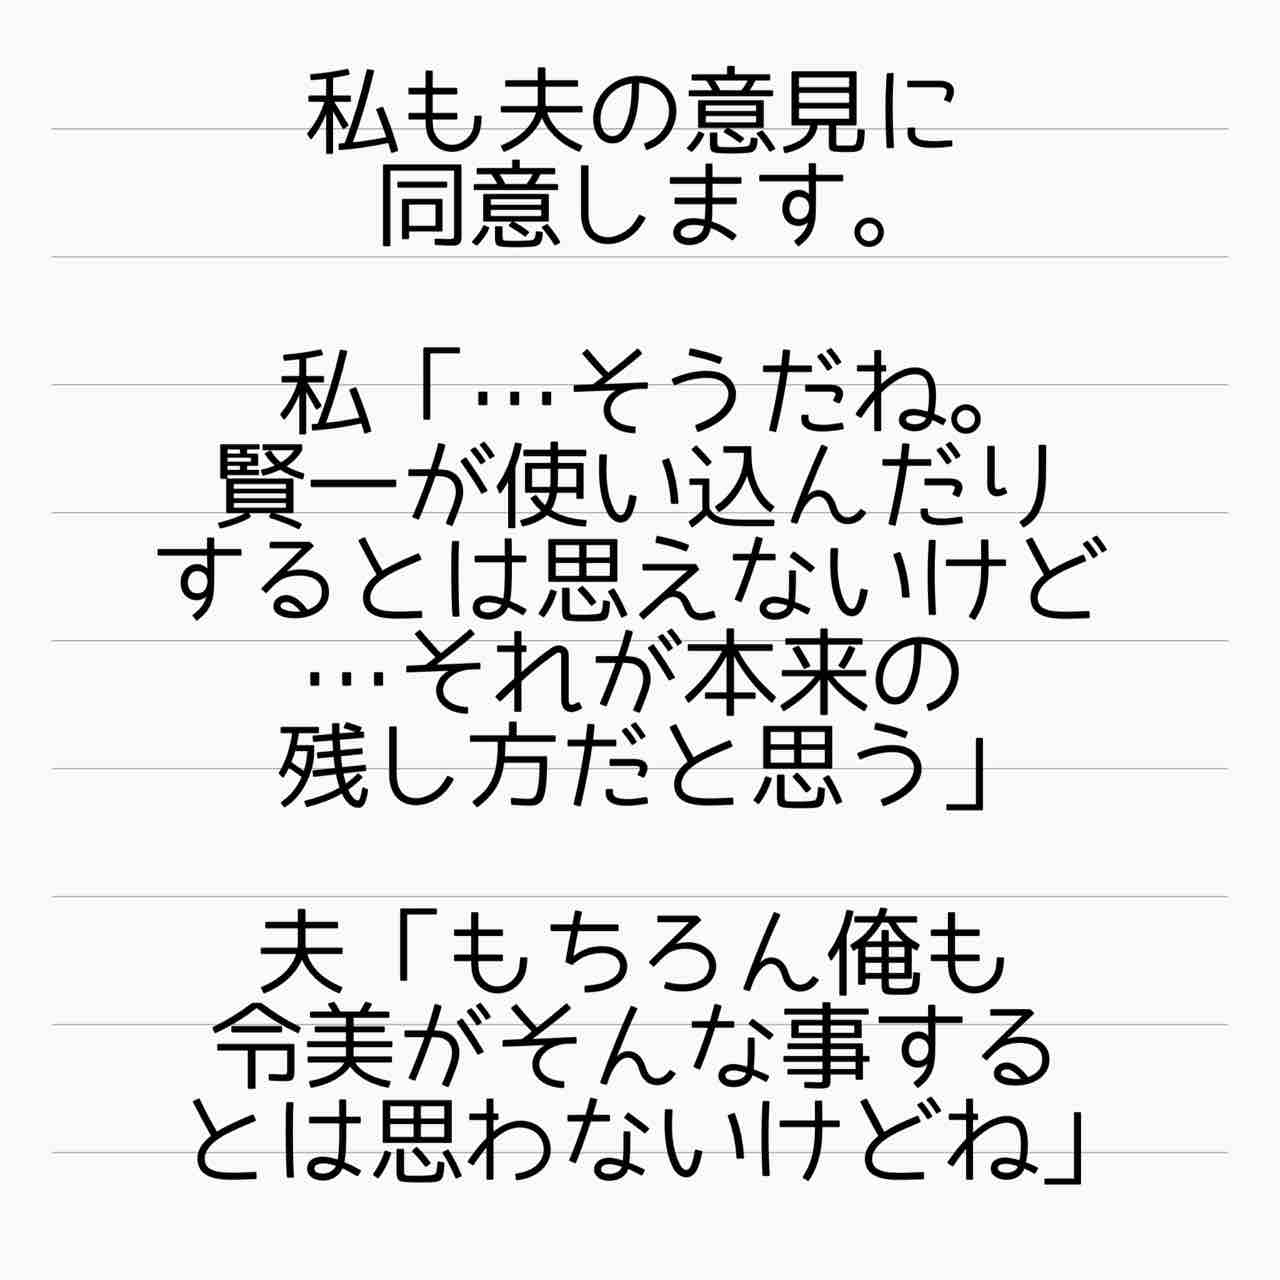 私も夫の意見に
同意します。
私「…そうだね。
賢一が使い込んだり
するとは思えないけど
…それが本来の
残し方だと思う」
夫「もちろん俺も
令美がそんな事する
とは思わないけどね」